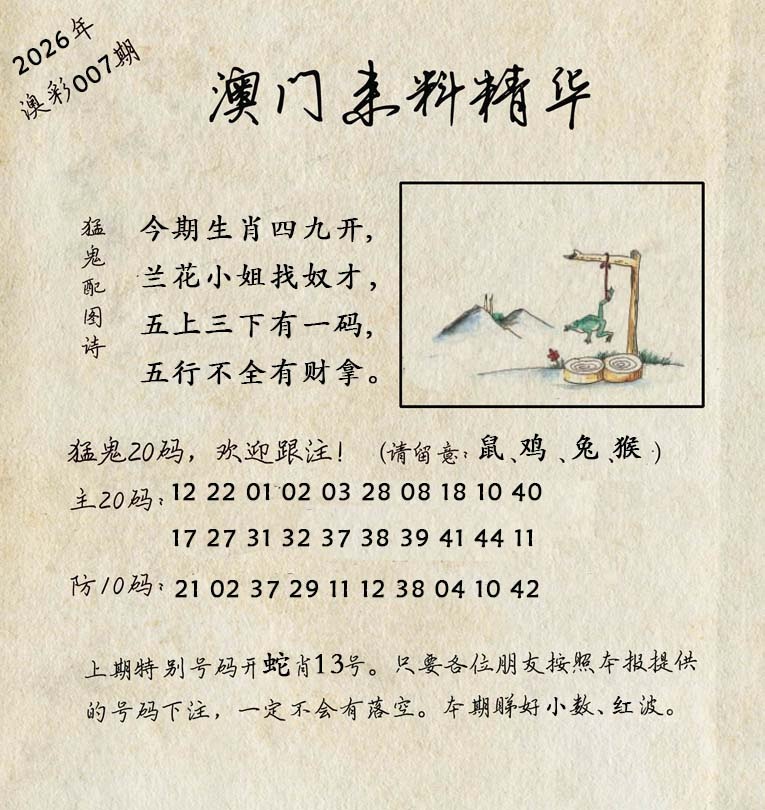 2026年
澳彩007期
澳门来料精华
猛鬼配图诗
今期生肖四九开,
兰花小姐找奴才,
五上三下有一码,
五行不全有财拿。
猛鬼20码,欢迎跟注! (请留意:鼠、鸡、兔、猴)
主20码: 12 22 01 02 03 28 08 18 10 40
17 27 31 32 37 38 39 41 44 11
防10码: 21 02 37 29 11 12 38 04 10 42
上期特别号码开蛇肖13号。只要各位朋友按照本报提供
的号码下注,一定不会有落空。本期睇好小数、红波。